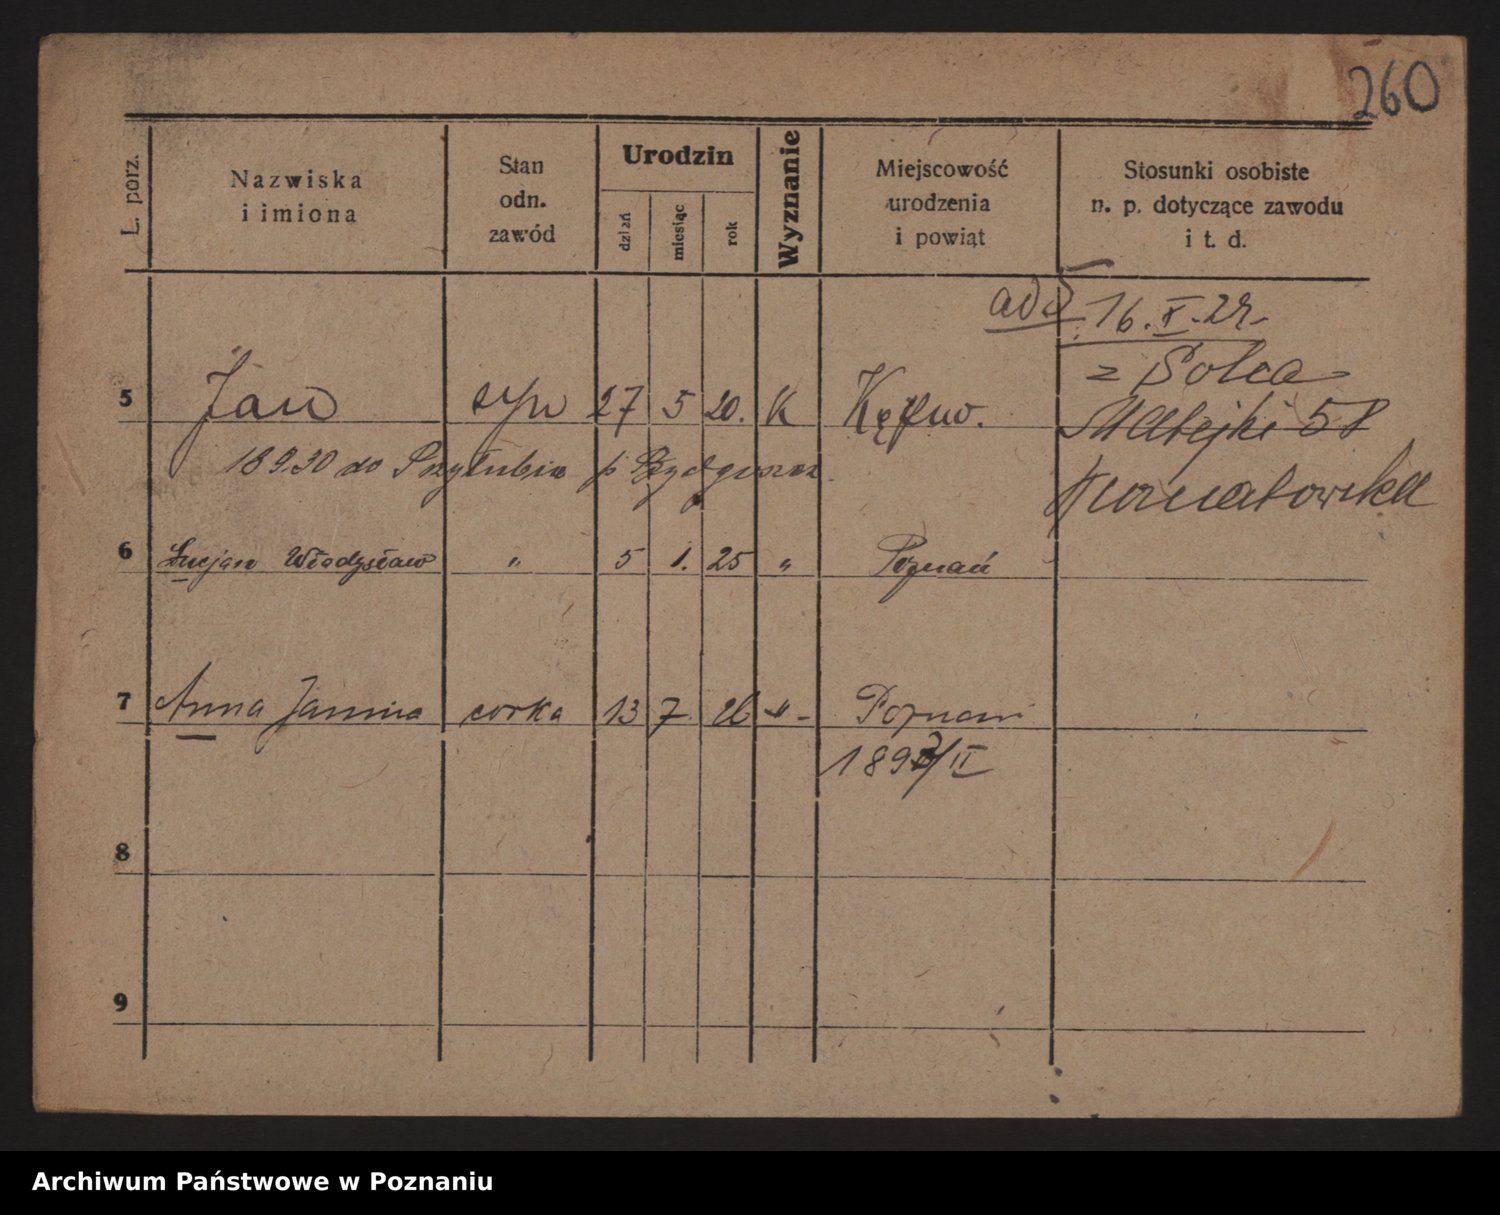 260
L. porz.
Nazwiska
i imiona
Stan
odn.
zawód
Urodzin
dzień
miesiąc
rok
Wyznanie
Miejscowość
urodzenia
i powiąt
Stosunki osobiste
n. p. dotyczące zawodu
i t. d.
ad 5 16. X. 29
z Solca
Matejki 58
5 Jan syn 27 5 20. K Kępno.
18930 do Przyłubia p Bydgoszcz
6 Lucjan Władysław " 5 1. 25 " Poznań
7 Anna Janina corka 13 7 26 -"- Poznań
/II
8
9
Archiwum Państwowe w Poznaniu